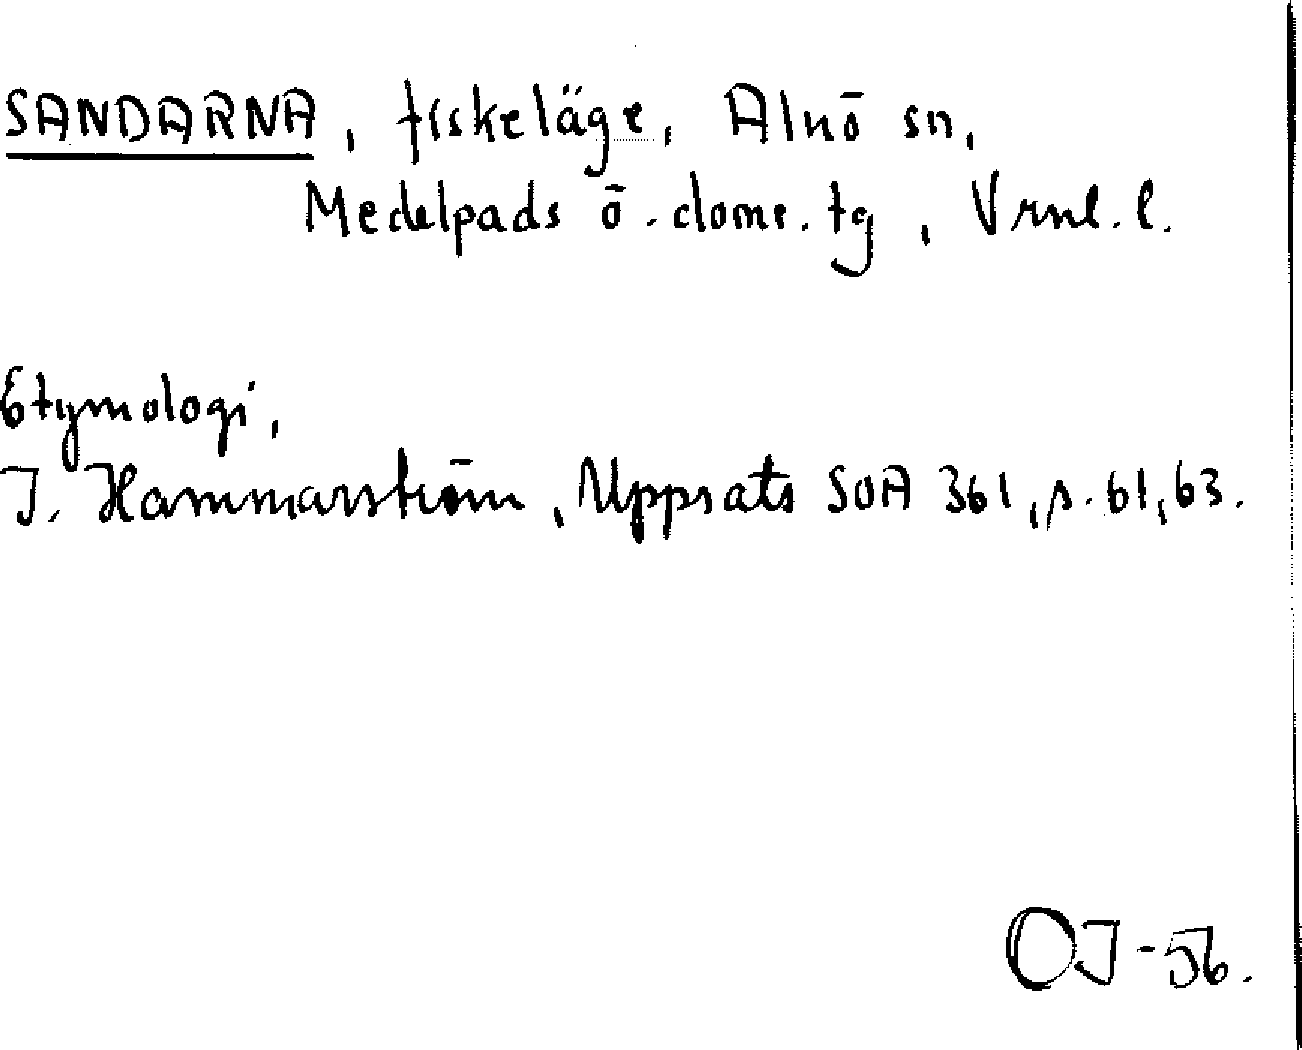 SANDARNA, fiskeläge, Alnö sn,
Medelpads ö. doms. tg, Vrnl. l.
Etymologi,
I. Hammarström, Uppsats SOA 361, s. 61, 63.
OJ-56.